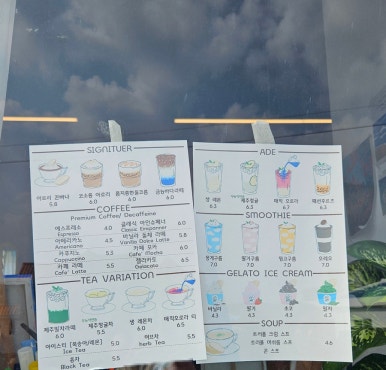 SIGNITUER
6.0
6.0
6.0
COFFEE
Premium Coffee/ Decaffeine
에스프레소 4.0
Espresso
클래식 아인슈페너 6.0
Classic Einspanner
아메리카노 4.5
Americano
바닐라 돌체 라떼 5.8
Vanilla Dolce Latte
카푸치노 5.5
Cappuccino
카페 모카 6.0
Cafe' Mocha
카페 라떼 5.5
Cafe' Latte
젤라카토 6.5
Gelacato
TEA VARIATION
제주말차라떼
6.0
제주청귤차
5.5
생 레몬차
6.0
매직오로라 티
6.5
아이스티 [복숭아/레몬] 5.0
Ice Tea
허브차 5.5
Herb Tea
홍차 5.5
Black Tea
ADE
생 레몬
6.3
제주청귤
6.3
매직 오로라
6.7
패션후르츠
6.3
SMOOTHIE
7.0
딸기요거트
7.0
망고요거트
7.0
오레오
7.0
GELATO ICE CREAM
바닐라
4.3
딸기
4.3
초코
4.3
말차
4.3
SOUP
트러플 크림 스프
트러플 머쉬룸 스프 4.6
콘 스프